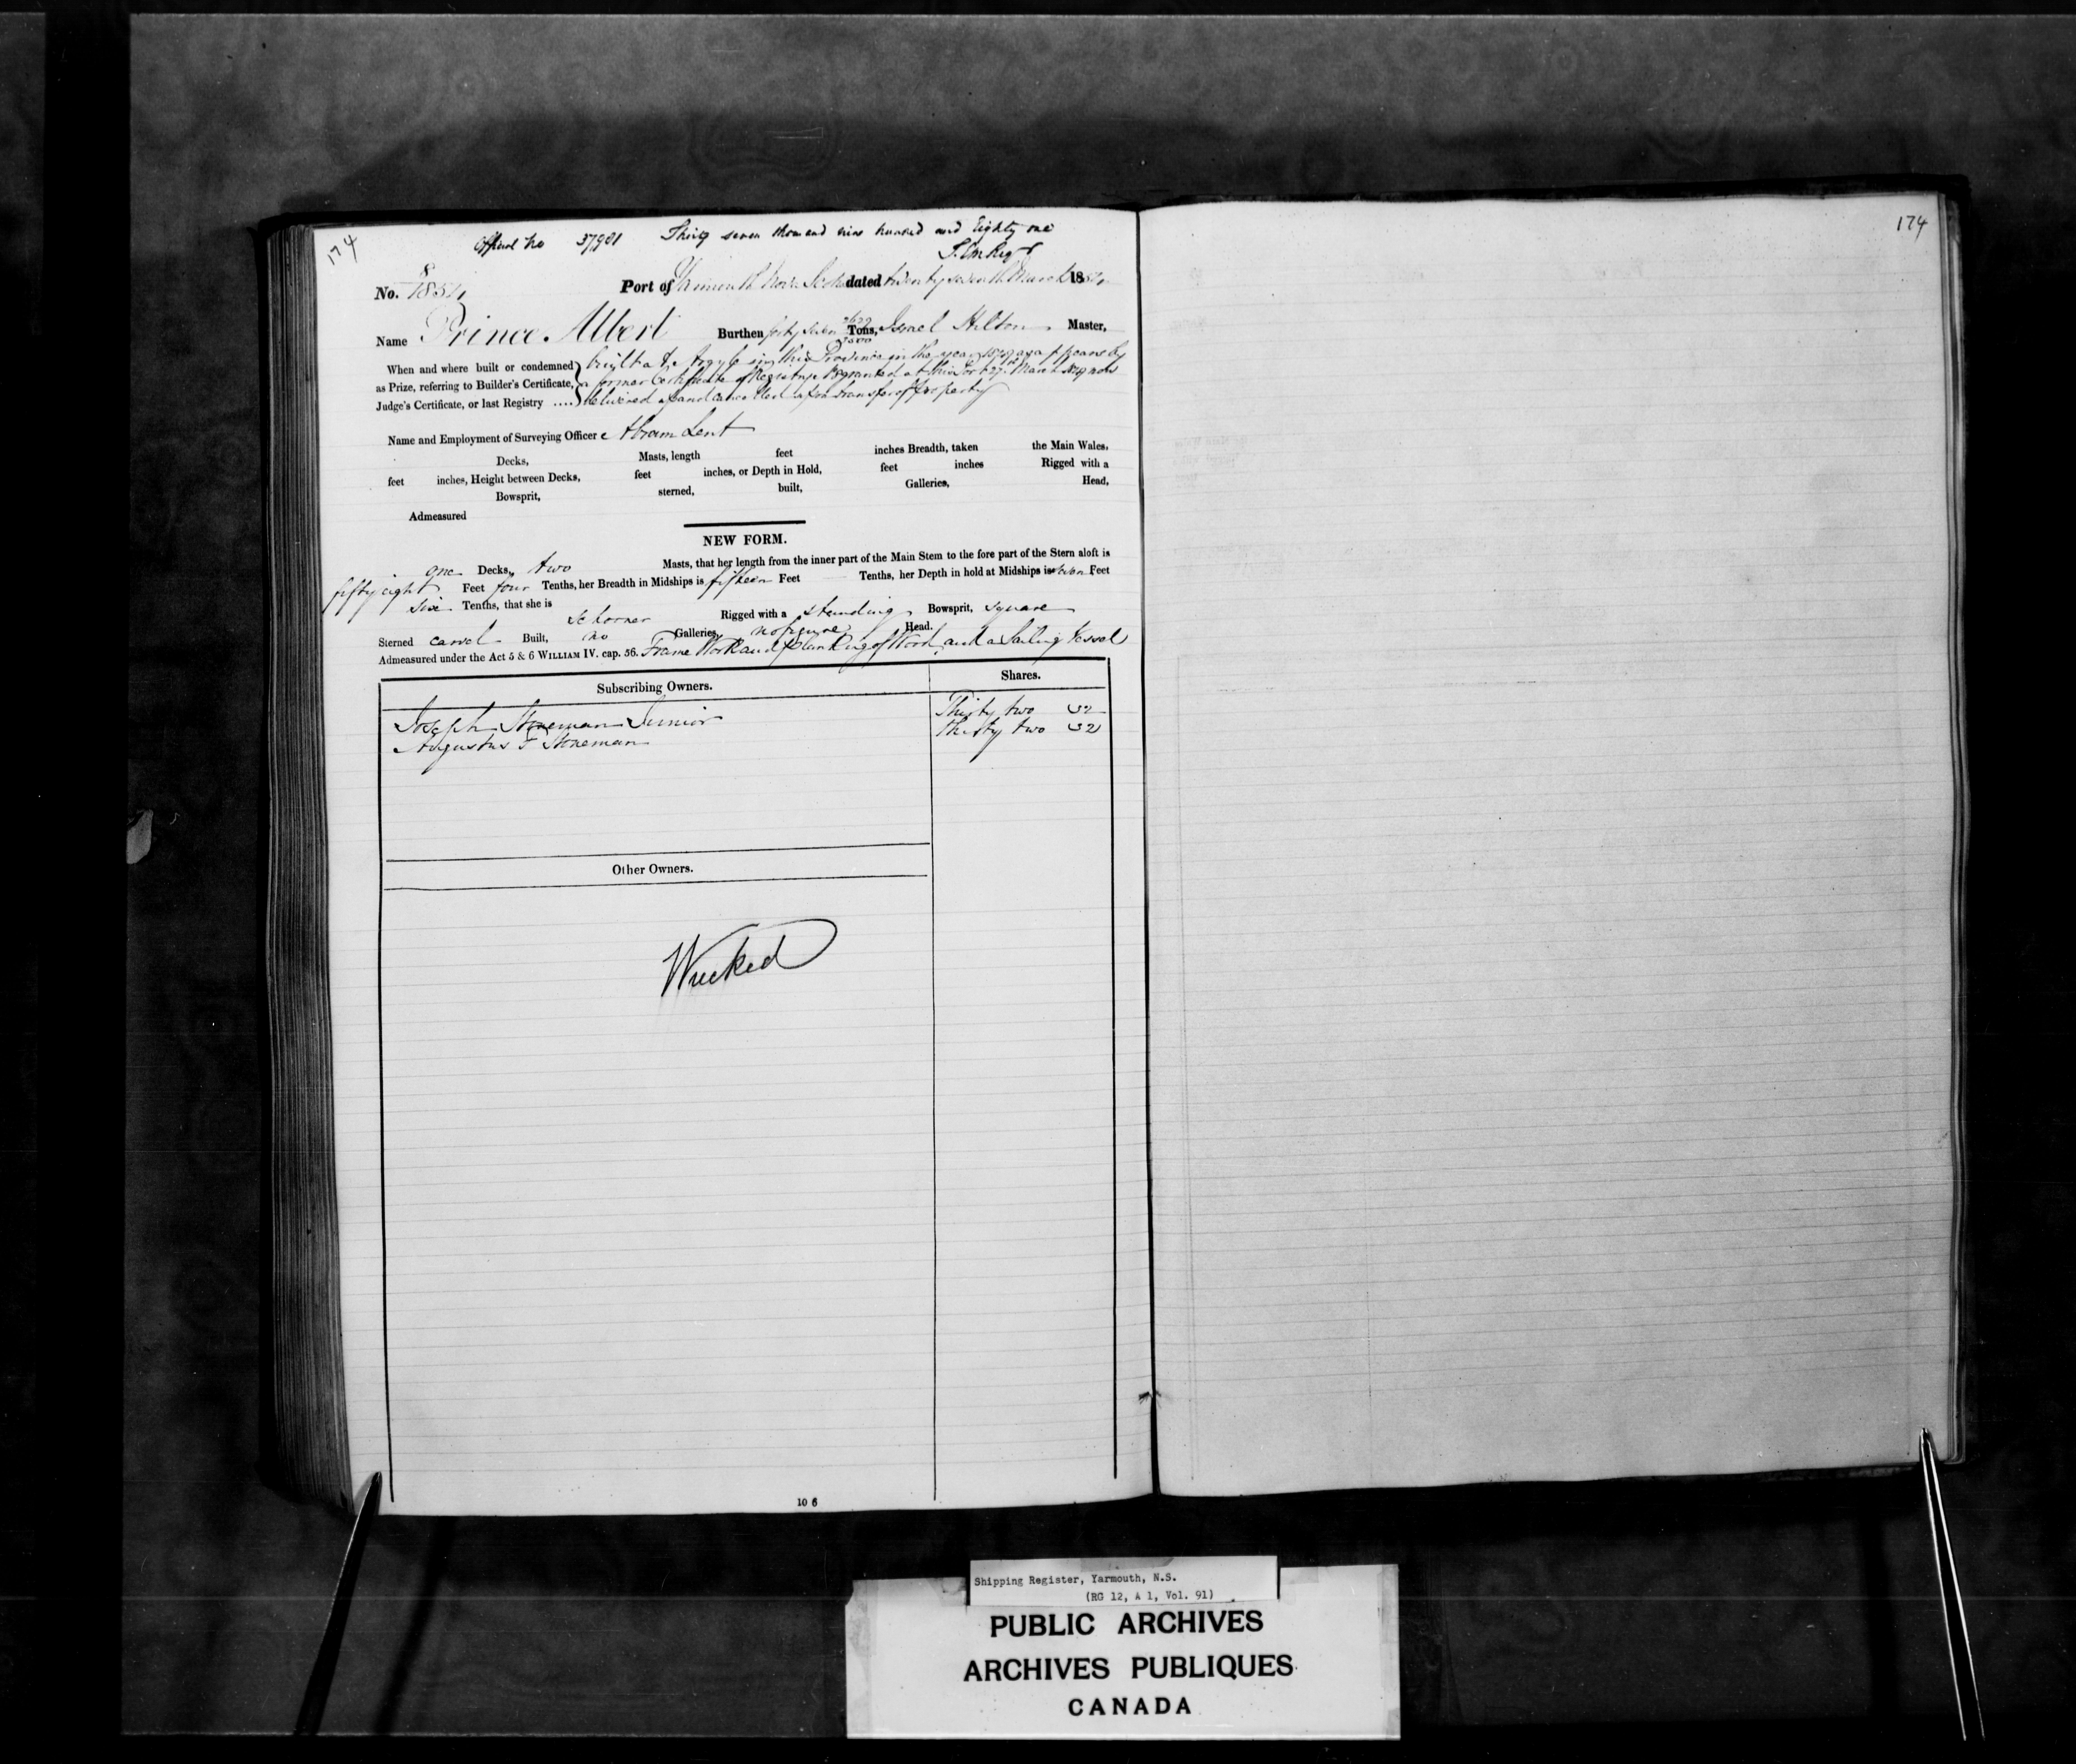 174
Official No 37981 Thirty seven thousand nine hundred and Eighty one
174
No. 8/1854 Port of Yarmouth Nova Scotia dated twenty seventh March 1854
Name Prince Albert Burthen forty seven Tons, Israel Hilton Master,
When and where built or condemned built at Argyle in this Province in the year as appears by
as Prize, referring to Builder's Certificate, a former Certificate of Registry granted at this Port 27th March now
Judge's Certificate, or last Registry .... delivered up and cancelled transfer of property
Name and Employment of Surveying Officer Abram Lent
Decks, Masts, length feet inches Breadth, taken the Main Wales,
feet inches, Height between Decks, feet inches, or Depth in Hold, feet inches Rigged with a
Bowsprit, sterned, built, Galleries, Head,
Admeasured
NEW FORM.
one Decks, two Masts, that her length from the inner part of the Main Stem to the fore part of the Stern aloft is
fifty eight Feet four Tenths, her Breadth in Midships is fifteen Feet Tenths, her Depth in hold at Midships is seven Feet
six Tenths, that she is schooner Rigged with a standing Bowsprit, square
Sterned carvel Built, no Galleries, no figure Head.
Admeasured under the Act 5 & 6 WILLIAM IV. cap. 56. Frame Work and planking of Wood, and a Sailing Vessel
Subscribing Owners. Shares.
Joseph Stoneman Junior Thirty two 32
Augustus F Stoneman Thirty two 32
Other Owners.
Wrecked
10 6
Shipping Register, Yarmouth, N.S.
(RG 12, A 1, Vol. 91)
PUBLIC ARCHIVES
ARCHIVES PUBLIQUES
CANADA